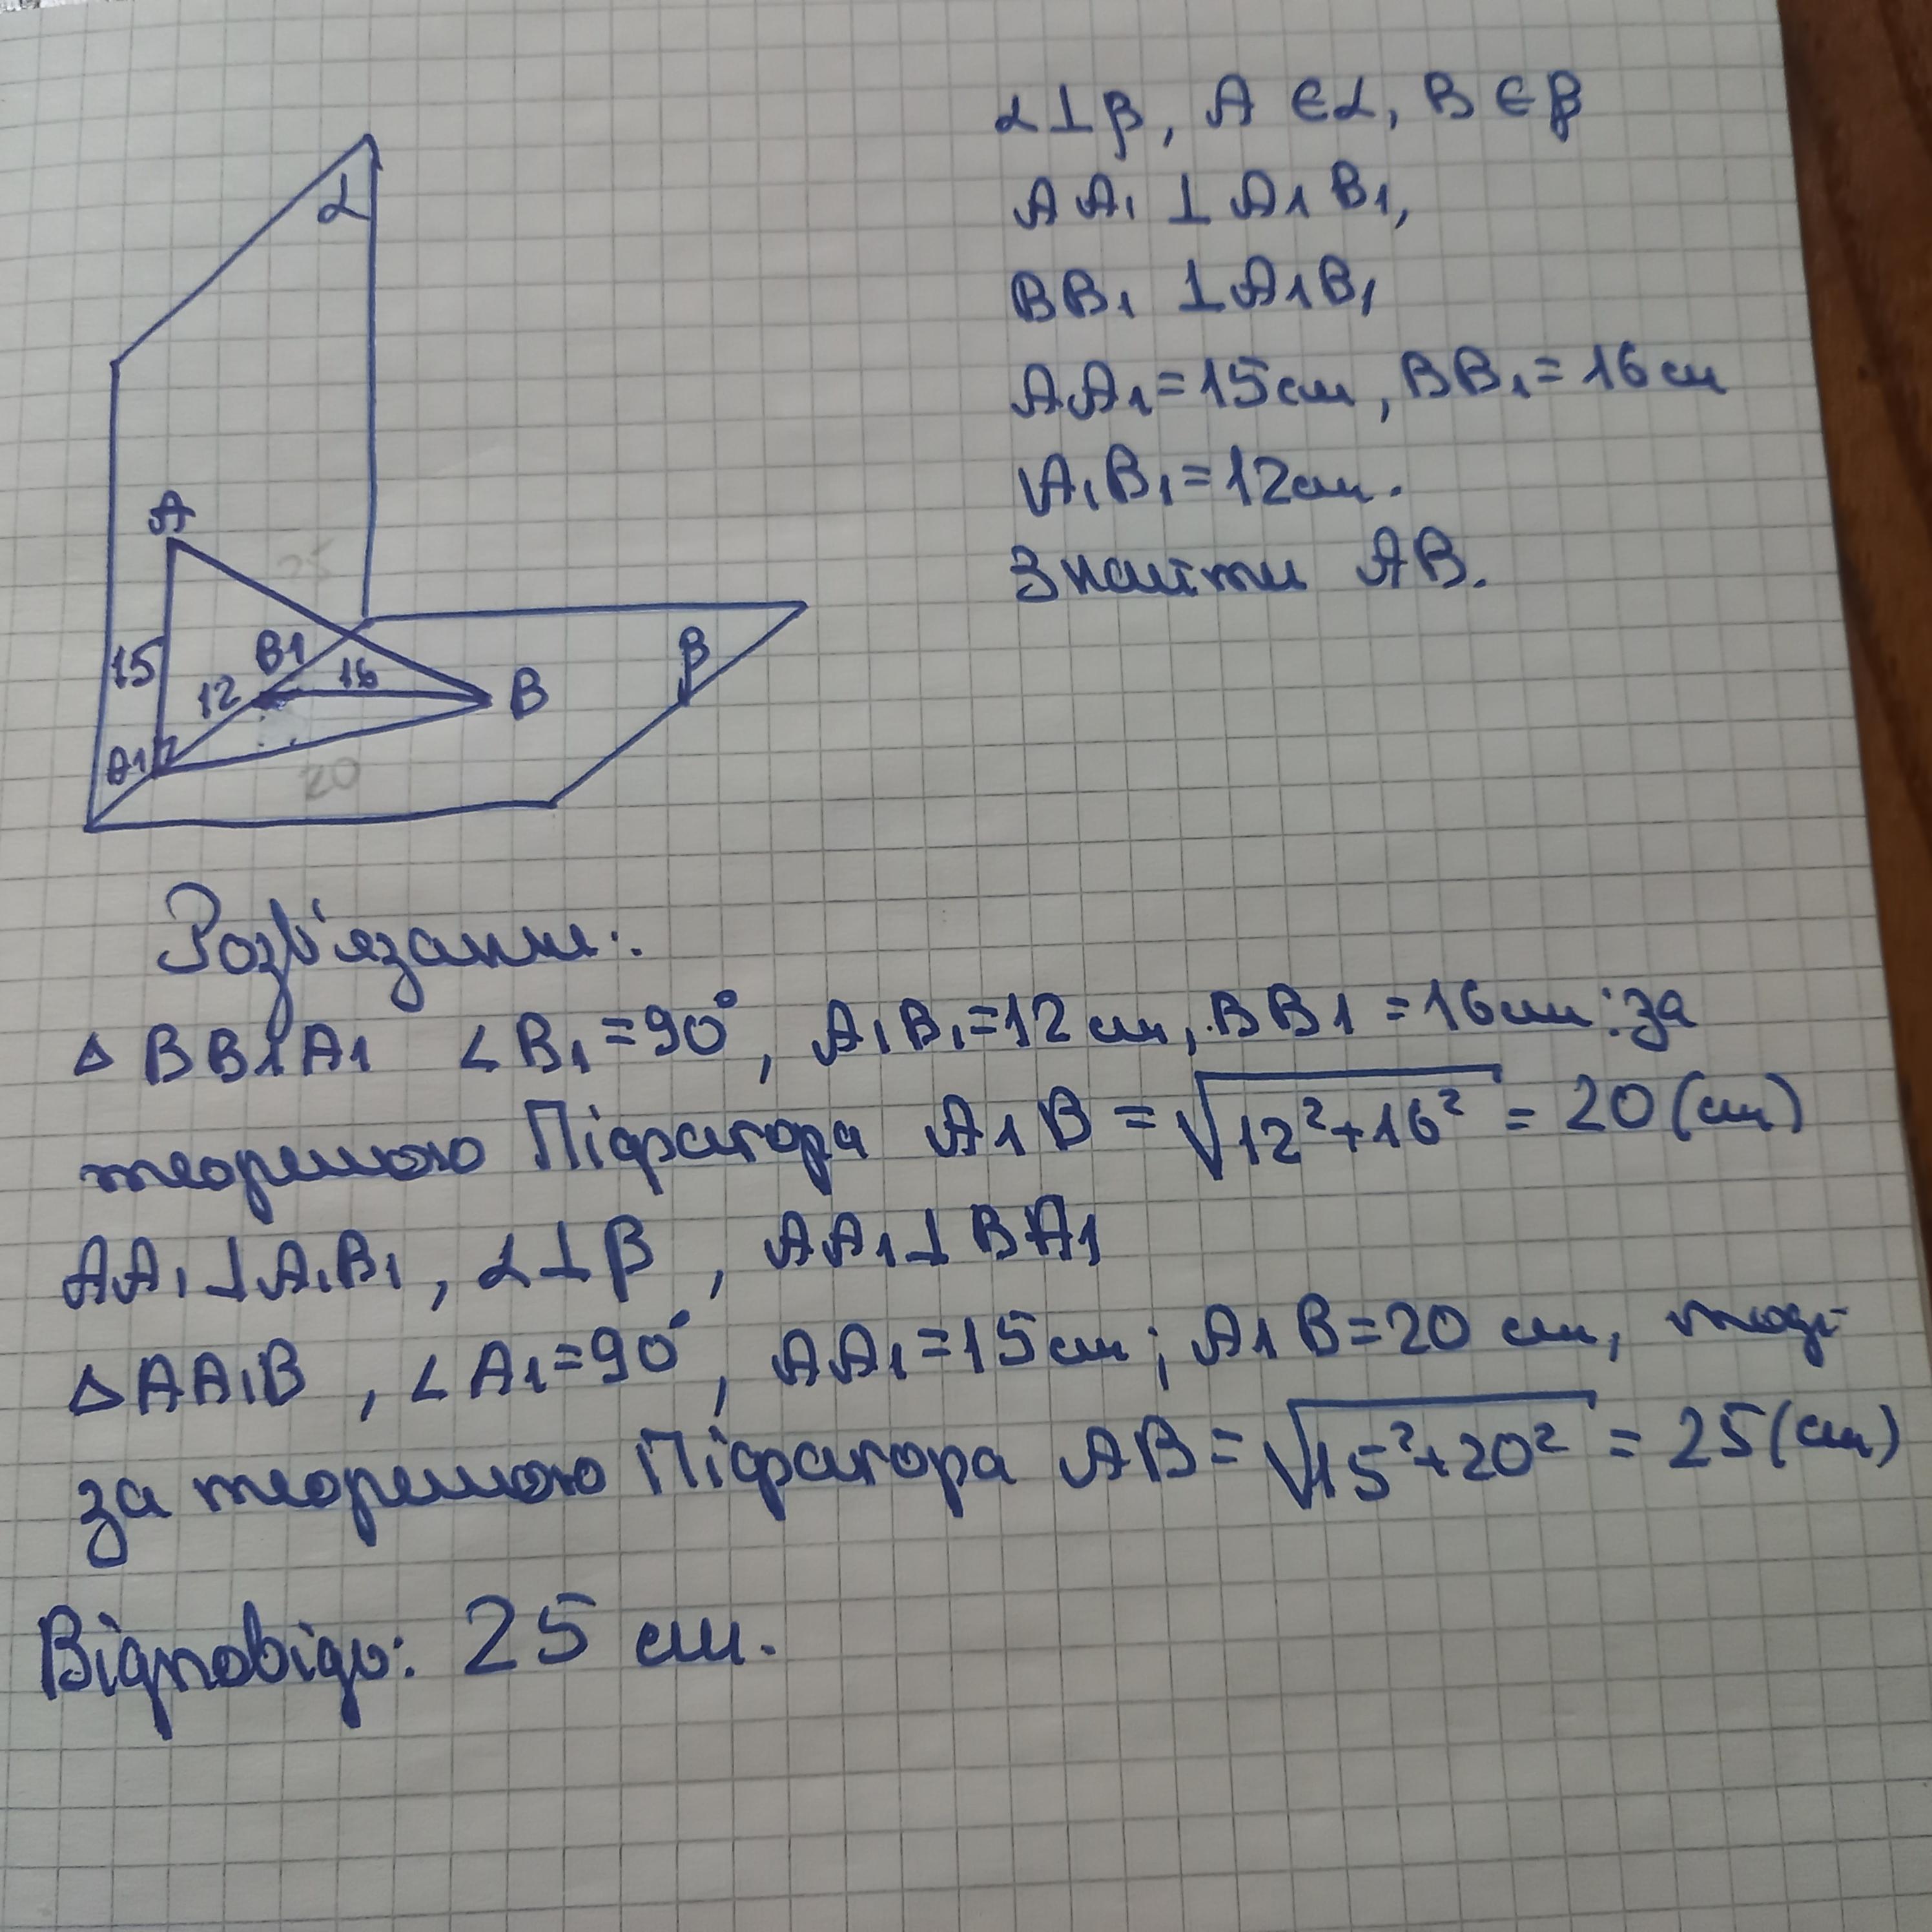 α ⊥ β, A ∈ α, B ∈ β
AA₁ ⊥ A₁B₁,
BB₁ ⊥ A₁B₁
AA₁ = 15 см, BB₁ = 16 см
A₁B₁ = 12 см.
Знайти AB.
α
A
25
15
B1
16
12
B
β
A1
20
Розв'язання:
△ BB1A1 ∠B₁ = 90°, A₁B₁ = 12 см, BB1 = 16 см: за
теоремою Піфагора A1B = √12²+16² = 20 (см)
AA₁ ⊥ A₁B₁, α ⊥ β, AA₁ ⊥ BA1
△AA₁B, ∠A₁ = 90°, AA₁ = 15 см; A1B = 20 см, тоді
за теоремою Піфагора AB = √15²+20² = 25 (см)
Відповідь: 25 см.